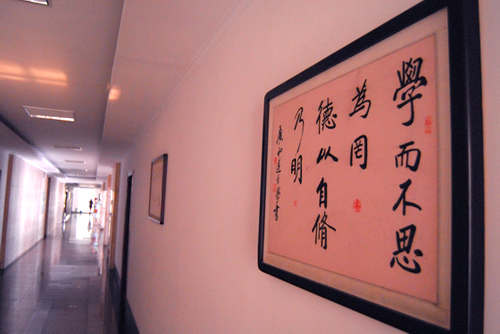 學而不思
為罔
德以自脩
乃明